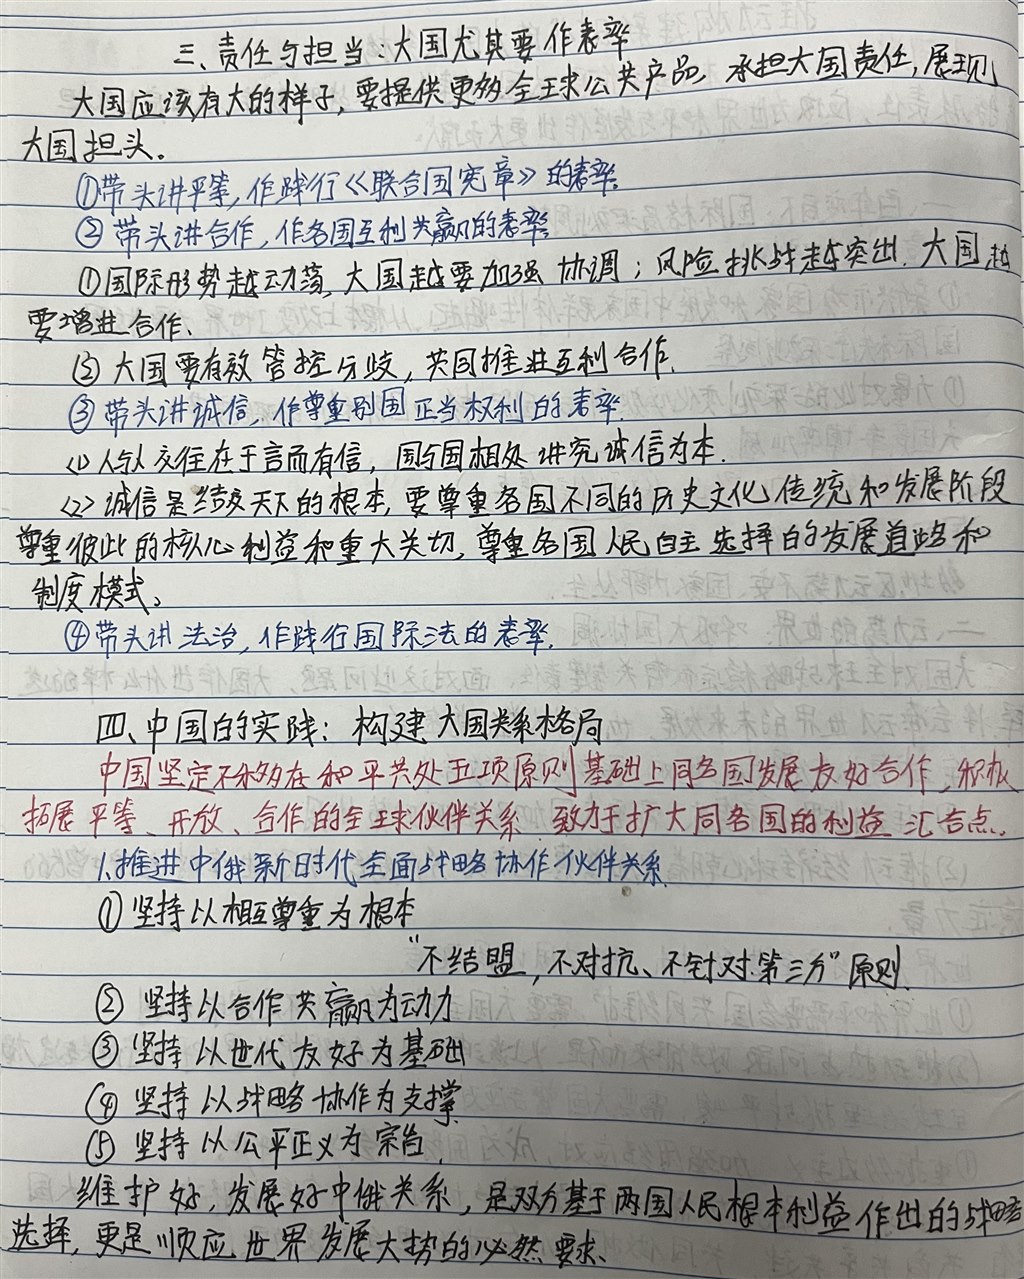 三、责任与担当:大国尤其要作表率
大国应该有大的样子,要提供更多全球公共产品,承担大国责任,展现
大国担头。
①带头讲平等,作践行《联合国宪章》的表率
②带头讲合作,作各国互利共赢的表率
①国际形势越动荡,大国越要加强协调;风险挑战越突出,大国越
要增进合作.
②大国要有效管控分歧,共同推进互利合作.
③带头讲诚信,作尊重别国正当权利的表率.
<1>人与人交往在于言而有信,国与国相处讲究诚信为本.
<2>诚信是结交天下的根本,要尊重各国不同的历史文化传统和发展阶段
尊重彼此的核心利益和重大关切,尊重各国人民自主选择的发展道路和
制度模式。
④带头讲法治,作践行国际法的表率.
四、中国的实践:构建大国关系格局
中国坚定不移在和平共处五项原则基础上同各国发展友好合作,积极
拓展平等、开放、合作的全球伙伴关系,致力于扩大同各国的利益汇合点.
1.推进中俄新时代全面战略协作伙伴关系
①坚持以相互尊重为根本
“不结盟,不对抗、不针对第三方”原则.
②坚持以合作共赢为动力
③坚持以世代友好为基础
④坚持以战略协作为支撑
⑤坚持以公平正义为宗旨.
维护好,发展好中俄关系,是双方基于两国人民根本利益作出的战略
选择,更是顺应世界发展大势的必然要求.